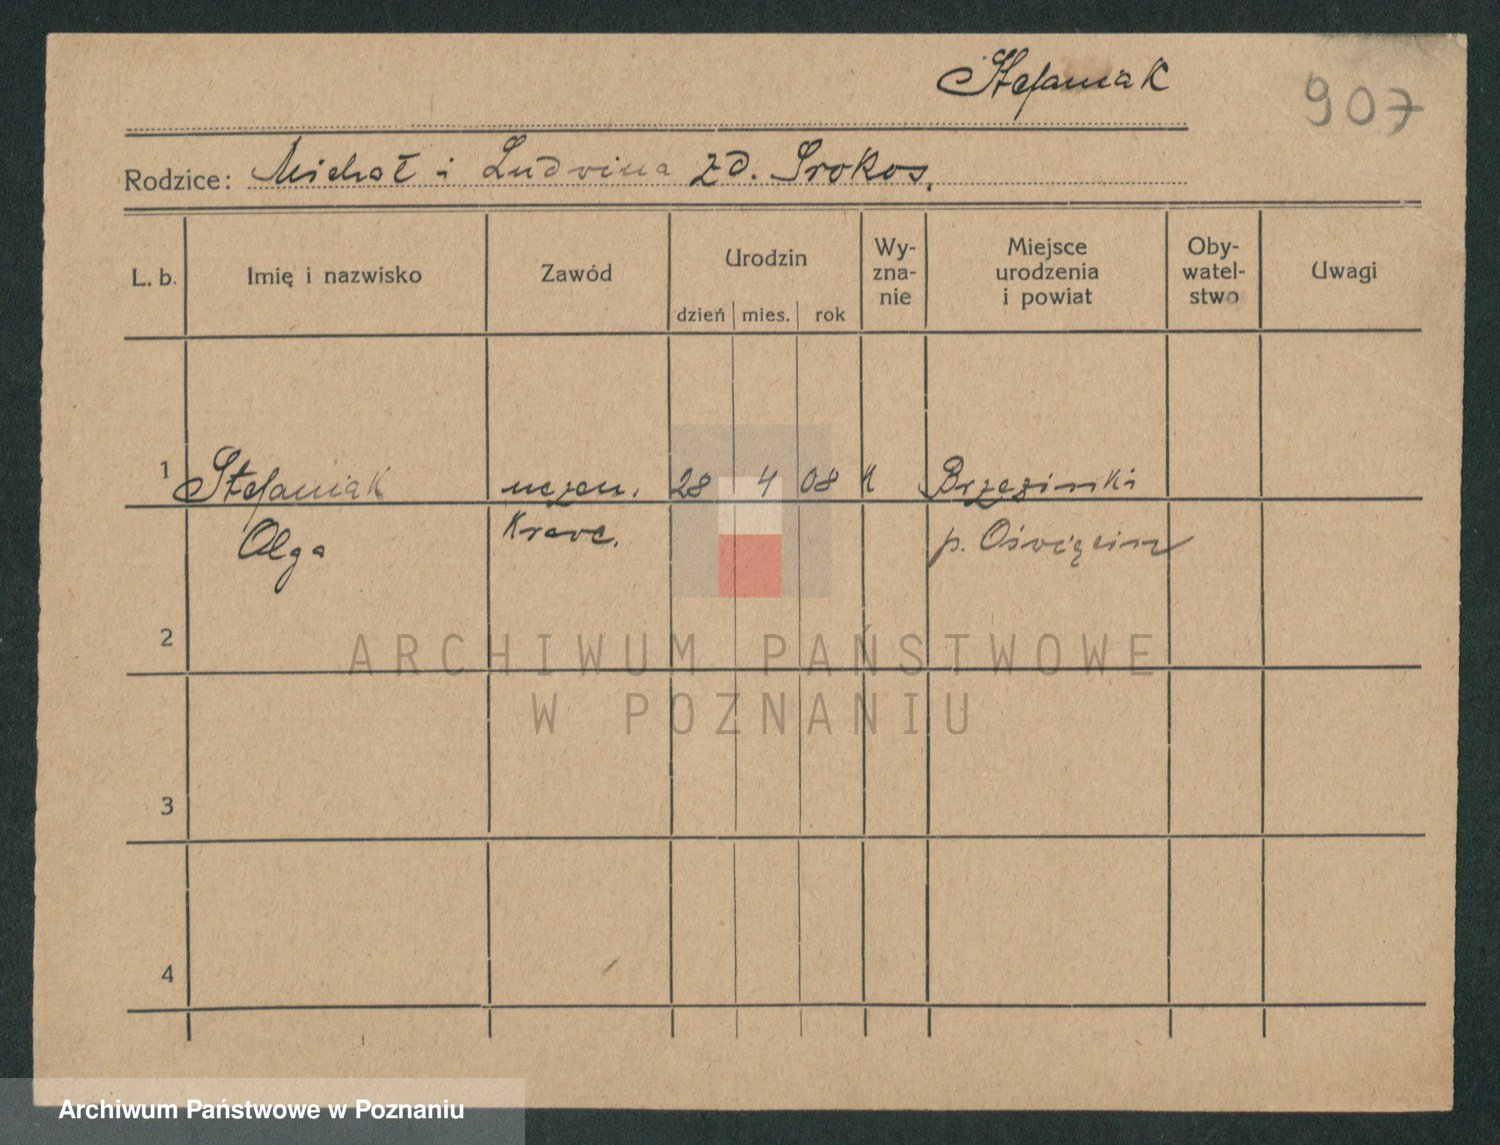 Stefaniak
907
Rodzice: Michał i Ludwina zd. Srokos.
L. b. Imię i nazwisko Zawód Urodzin Wy-zna-nie Miejsce urodzenia i powiat Oby-watel-stwo Uwagi
dzień mies. rok
1 Stefaniak uczen. 28 4 08 K Brzezinski
Olga Krawc. p. Oświęcim
2
ARCHIWUM PAŃSTWOWE
W POZNANIU
3
4
Archiwum Państwowe w Poznaniu